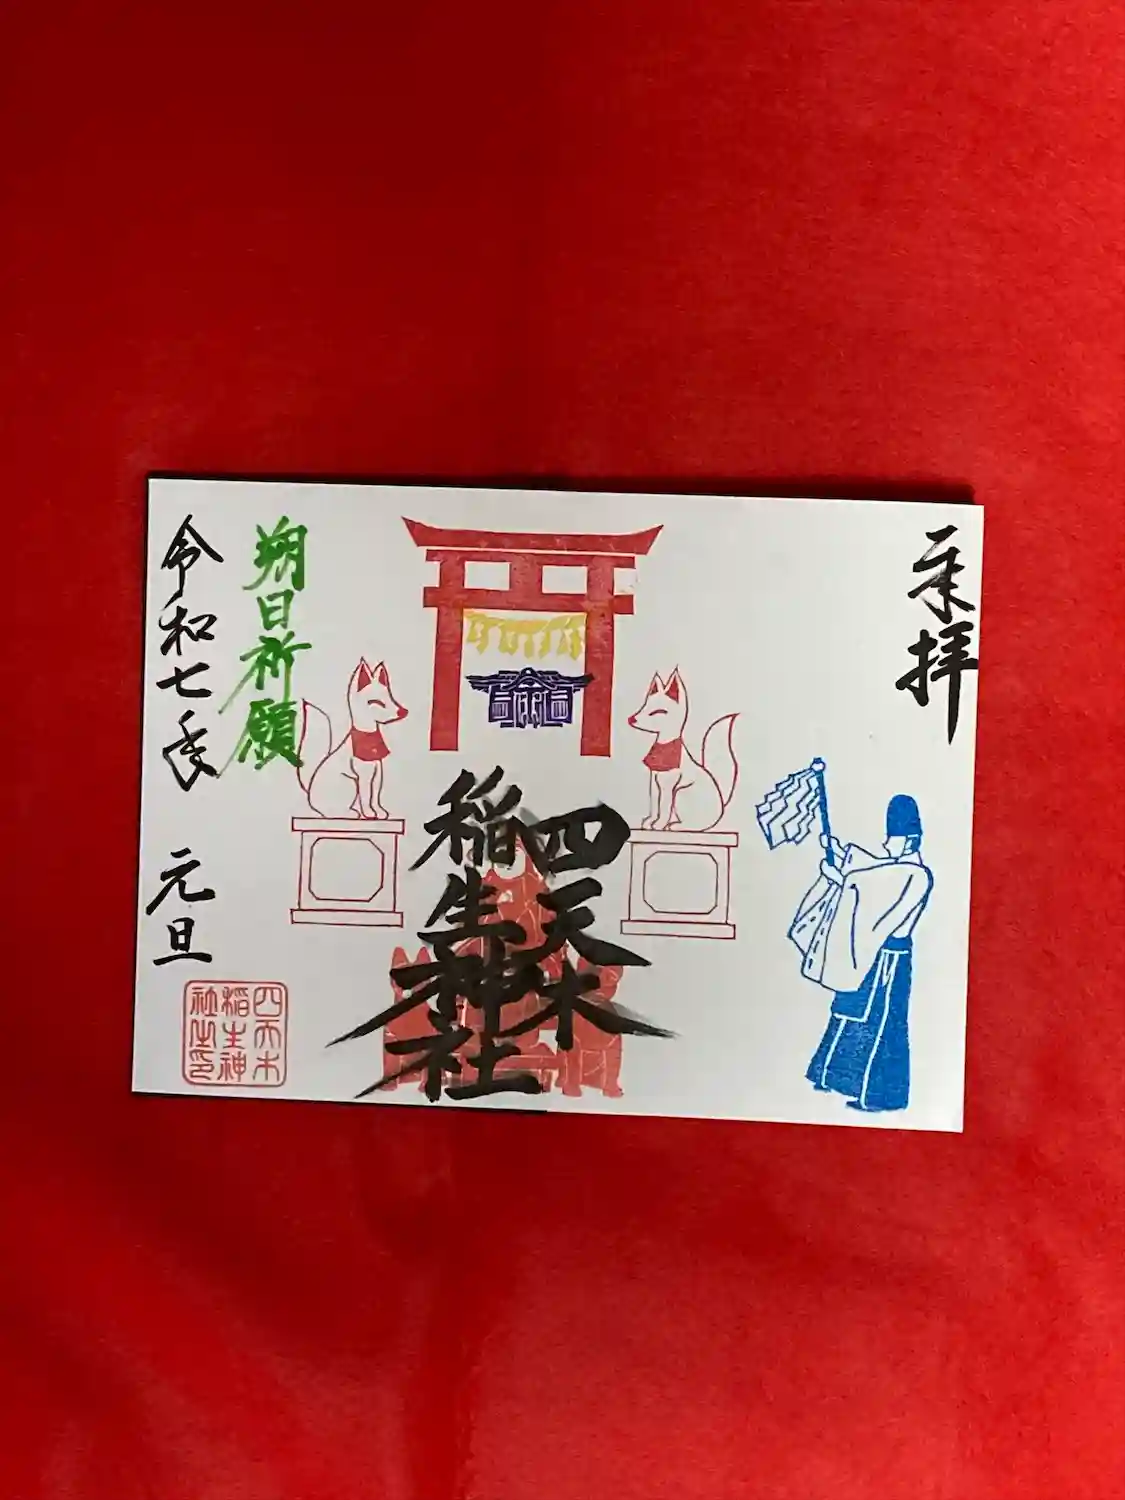 奉拝
四天木
稲生神社
朔日祈願
令和七年 元旦
四天木
稲生神
社之印